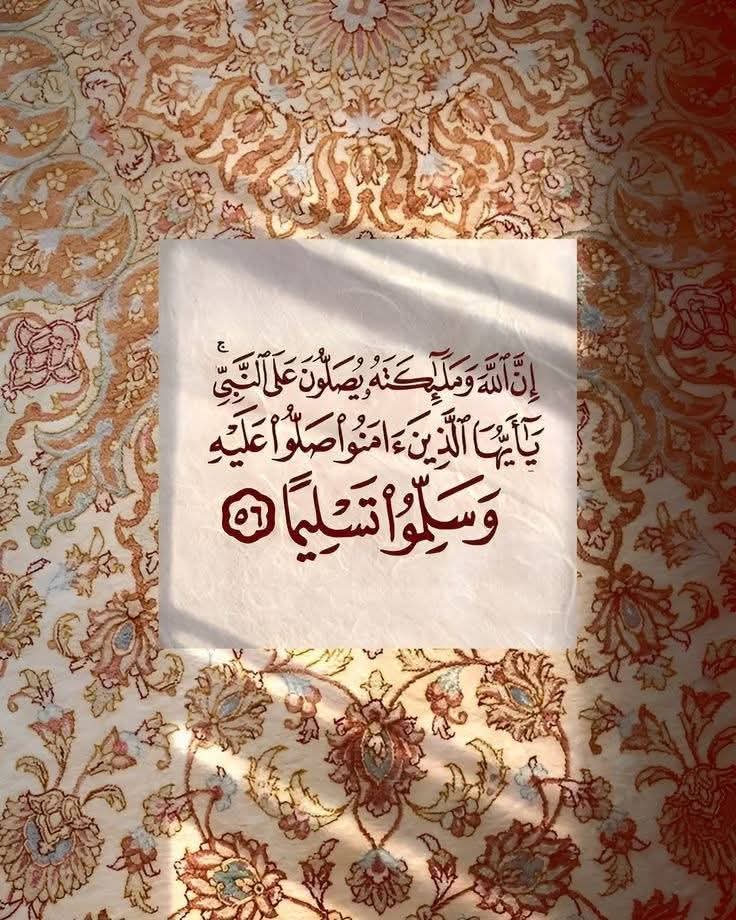 إِنَّ ٱللَّهَ وَمَلَٰٓئِكَتَهُۥ يُصَلُّونَ عَلَى ٱلنَّبِىِّ ۚ
يَٰٓأَيُّهَا ٱلَّذِينَ ءَامَنُوا۟ صَلُّوا۟ عَلَيْهِ
وَسَلِّمُوا۟ تَسْلِيمًا ٥٦